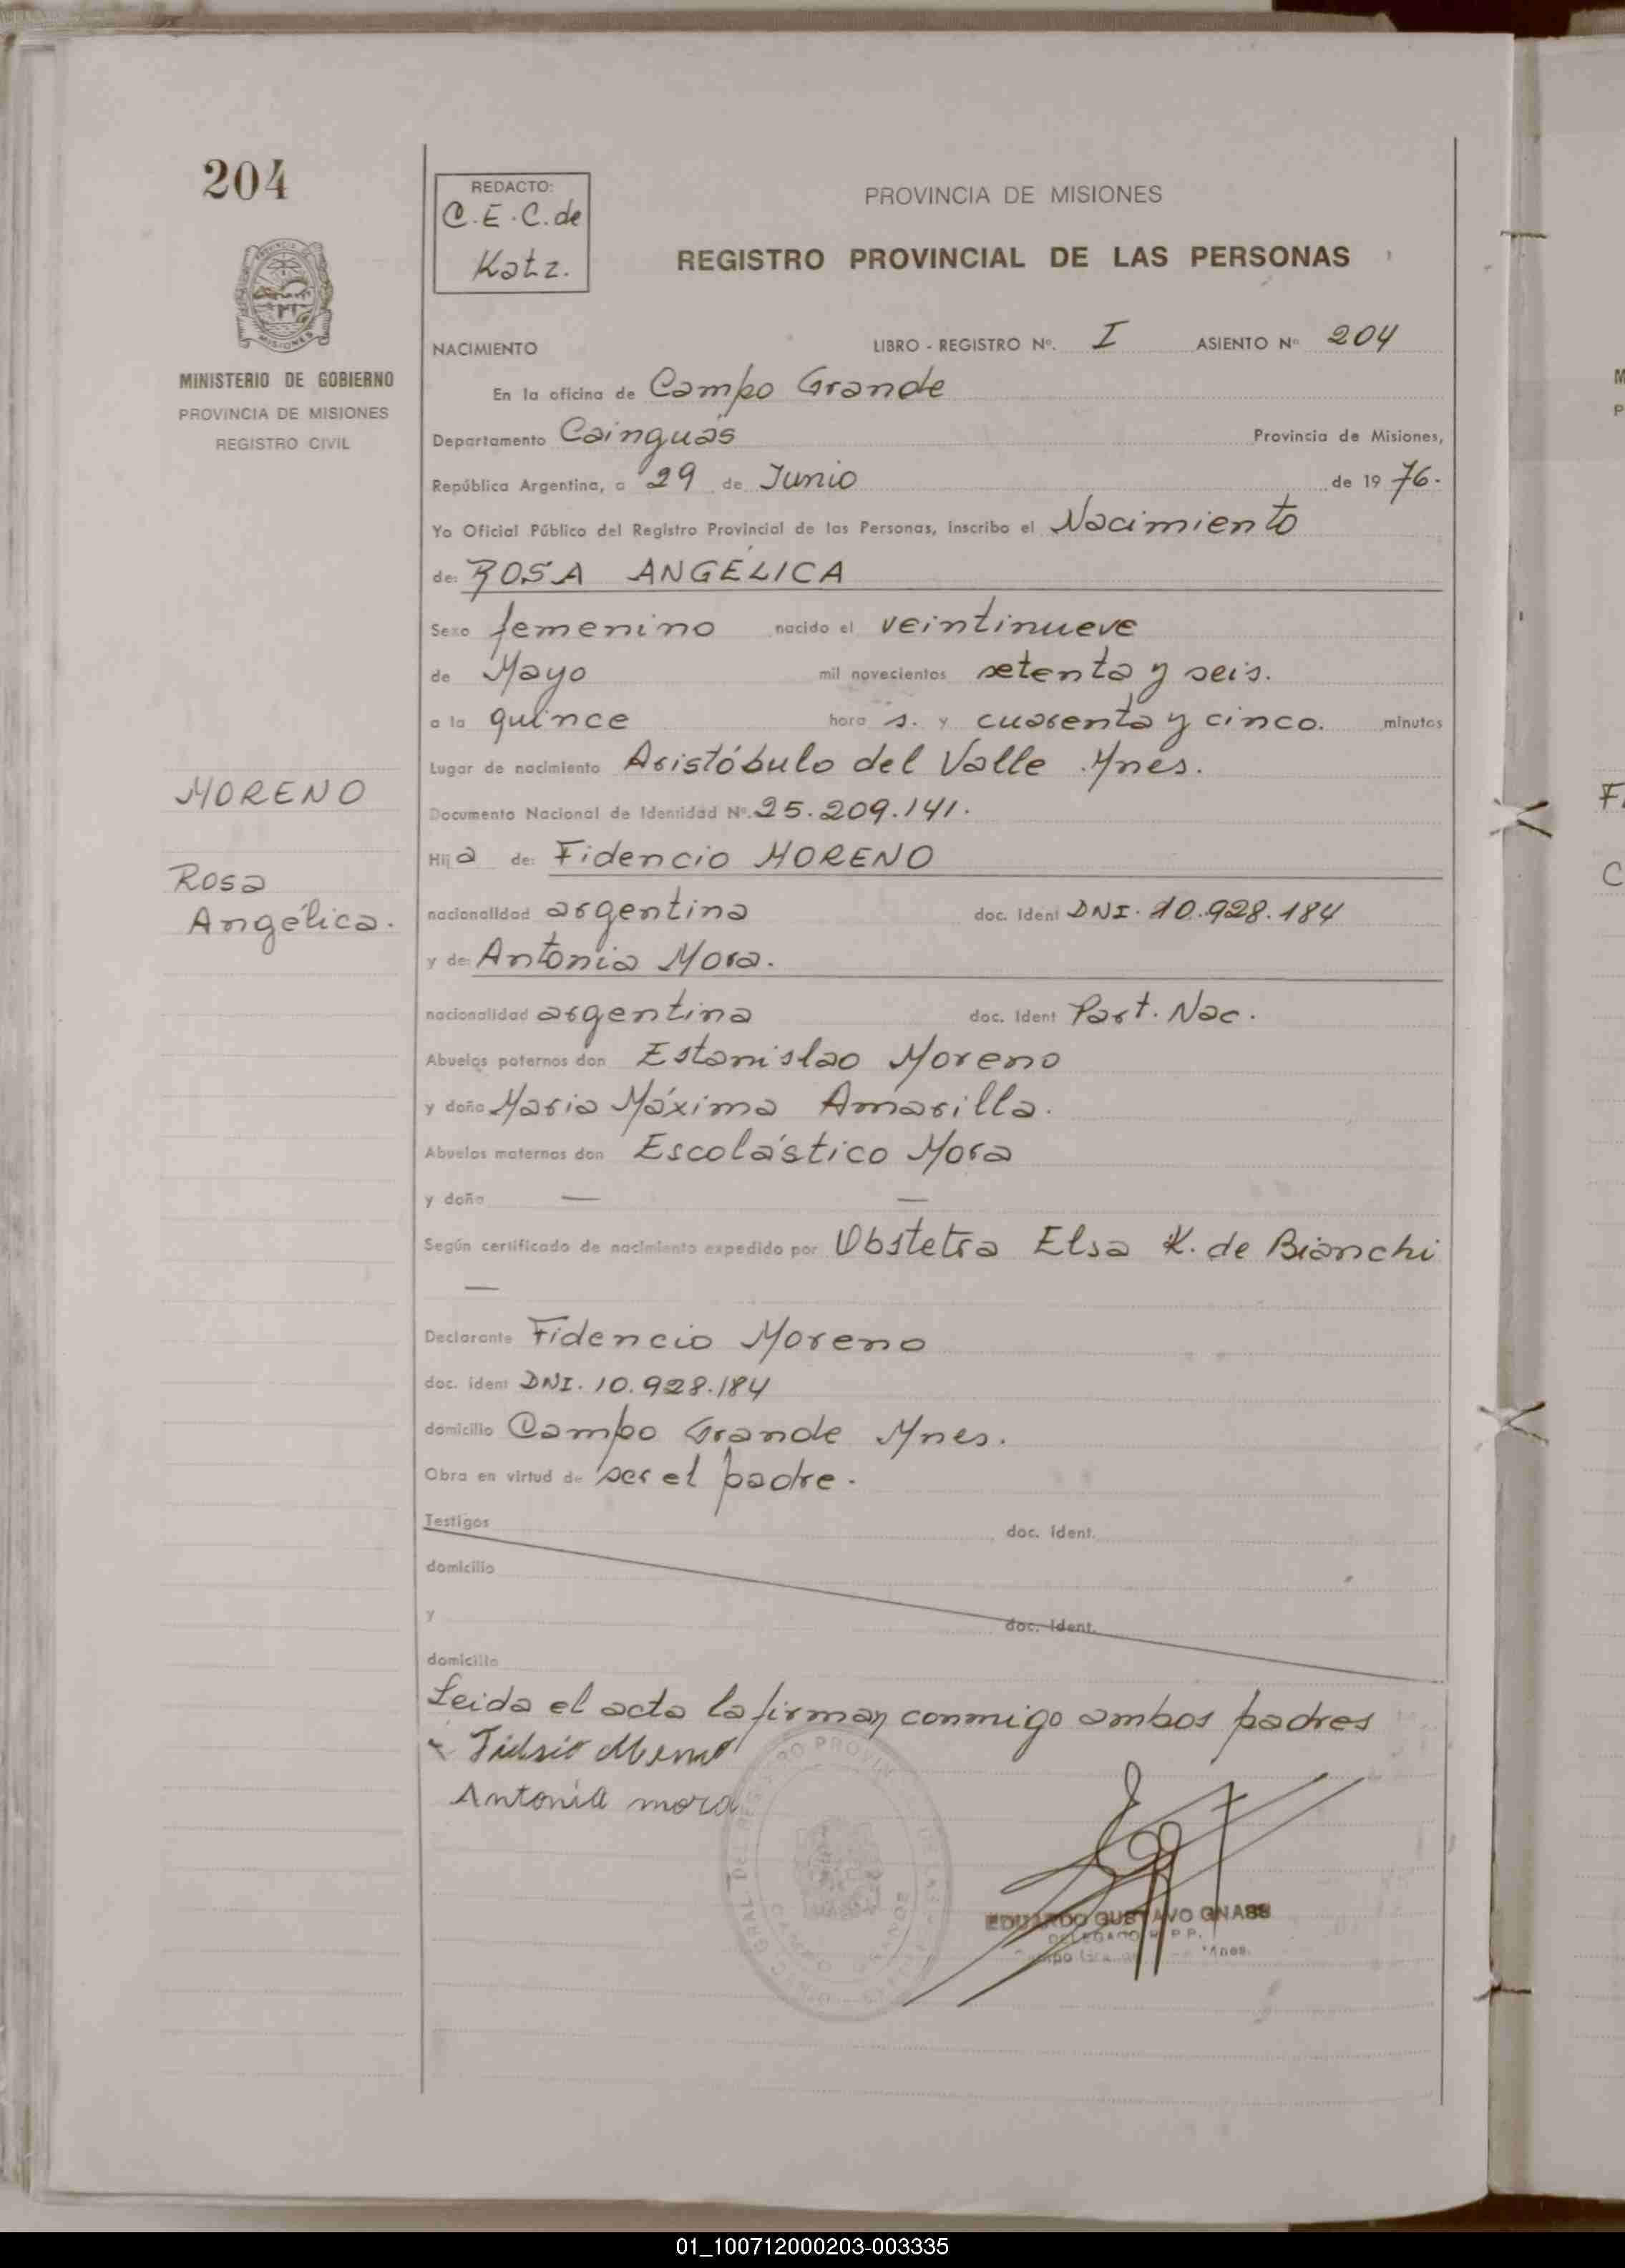 204
REDACTO:
C.E.C. de
Katz.
PROVINCIA DE MISIONES
REGISTRO PROVINCIAL DE LAS PERSONAS
PROVINCIA
MISIONES
MINISTERIO DE GOBIERNO
PROVINCIA DE MISIONES
REGISTRO CIVIL
NACIMIENTO LIBRO - REGISTRO Nº. I ASIENTO Nº 204
En la oficina de Campo Grande
Departamento Cainguás Provincia de Misiones,
República Argentina, a 29 de Junio de 19 76.
Yo Oficial Público del Registro Provincial de las Personas, inscribo el Nacimiento
de: ROSA ANGÉLICA
Sexo femenino nacido el veintinueve
de Mayo mil novecientos setenta y seis.
a la quince hora s. y cuarenta y cinco. minutos
Lugar de nacimiento Aristóbulo del Valle Mnes.
MORENO
Documento Nacional de Identidad Nº. 25.209.141.
Hij a de: Fidencio MORENO
Rosa
Angélica.
nacionalidad argentina doc. Ident DNI. 10.928.184
y de: Antonia Mora.
nacionalidad argentina doc. Ident Part. Nac.
Abuelos paternos don Estanislao Moreno
y doña Maria Máxima Amarilla.
Abuelos maternos don Escolástico Mora
y doña — —
Según certificado de nacimiento expedido por Obstetra Elsa K. de Bianchi
—
Declarante Fidencio Moreno
doc. ident DNI. 10.928.184
domicilio Campo Grande Mnes.
Obra en virtud de ser el padre.
Testigos doc. Ident.
domicilio
y doc. Ident.
domicilio
Leida el acta la firman conmigo ambos padres
Antonia mora
EDUARDO GUSTAVO GNASS
DELEGADO R. P. P.
Mnes.
01_100712000203-003335